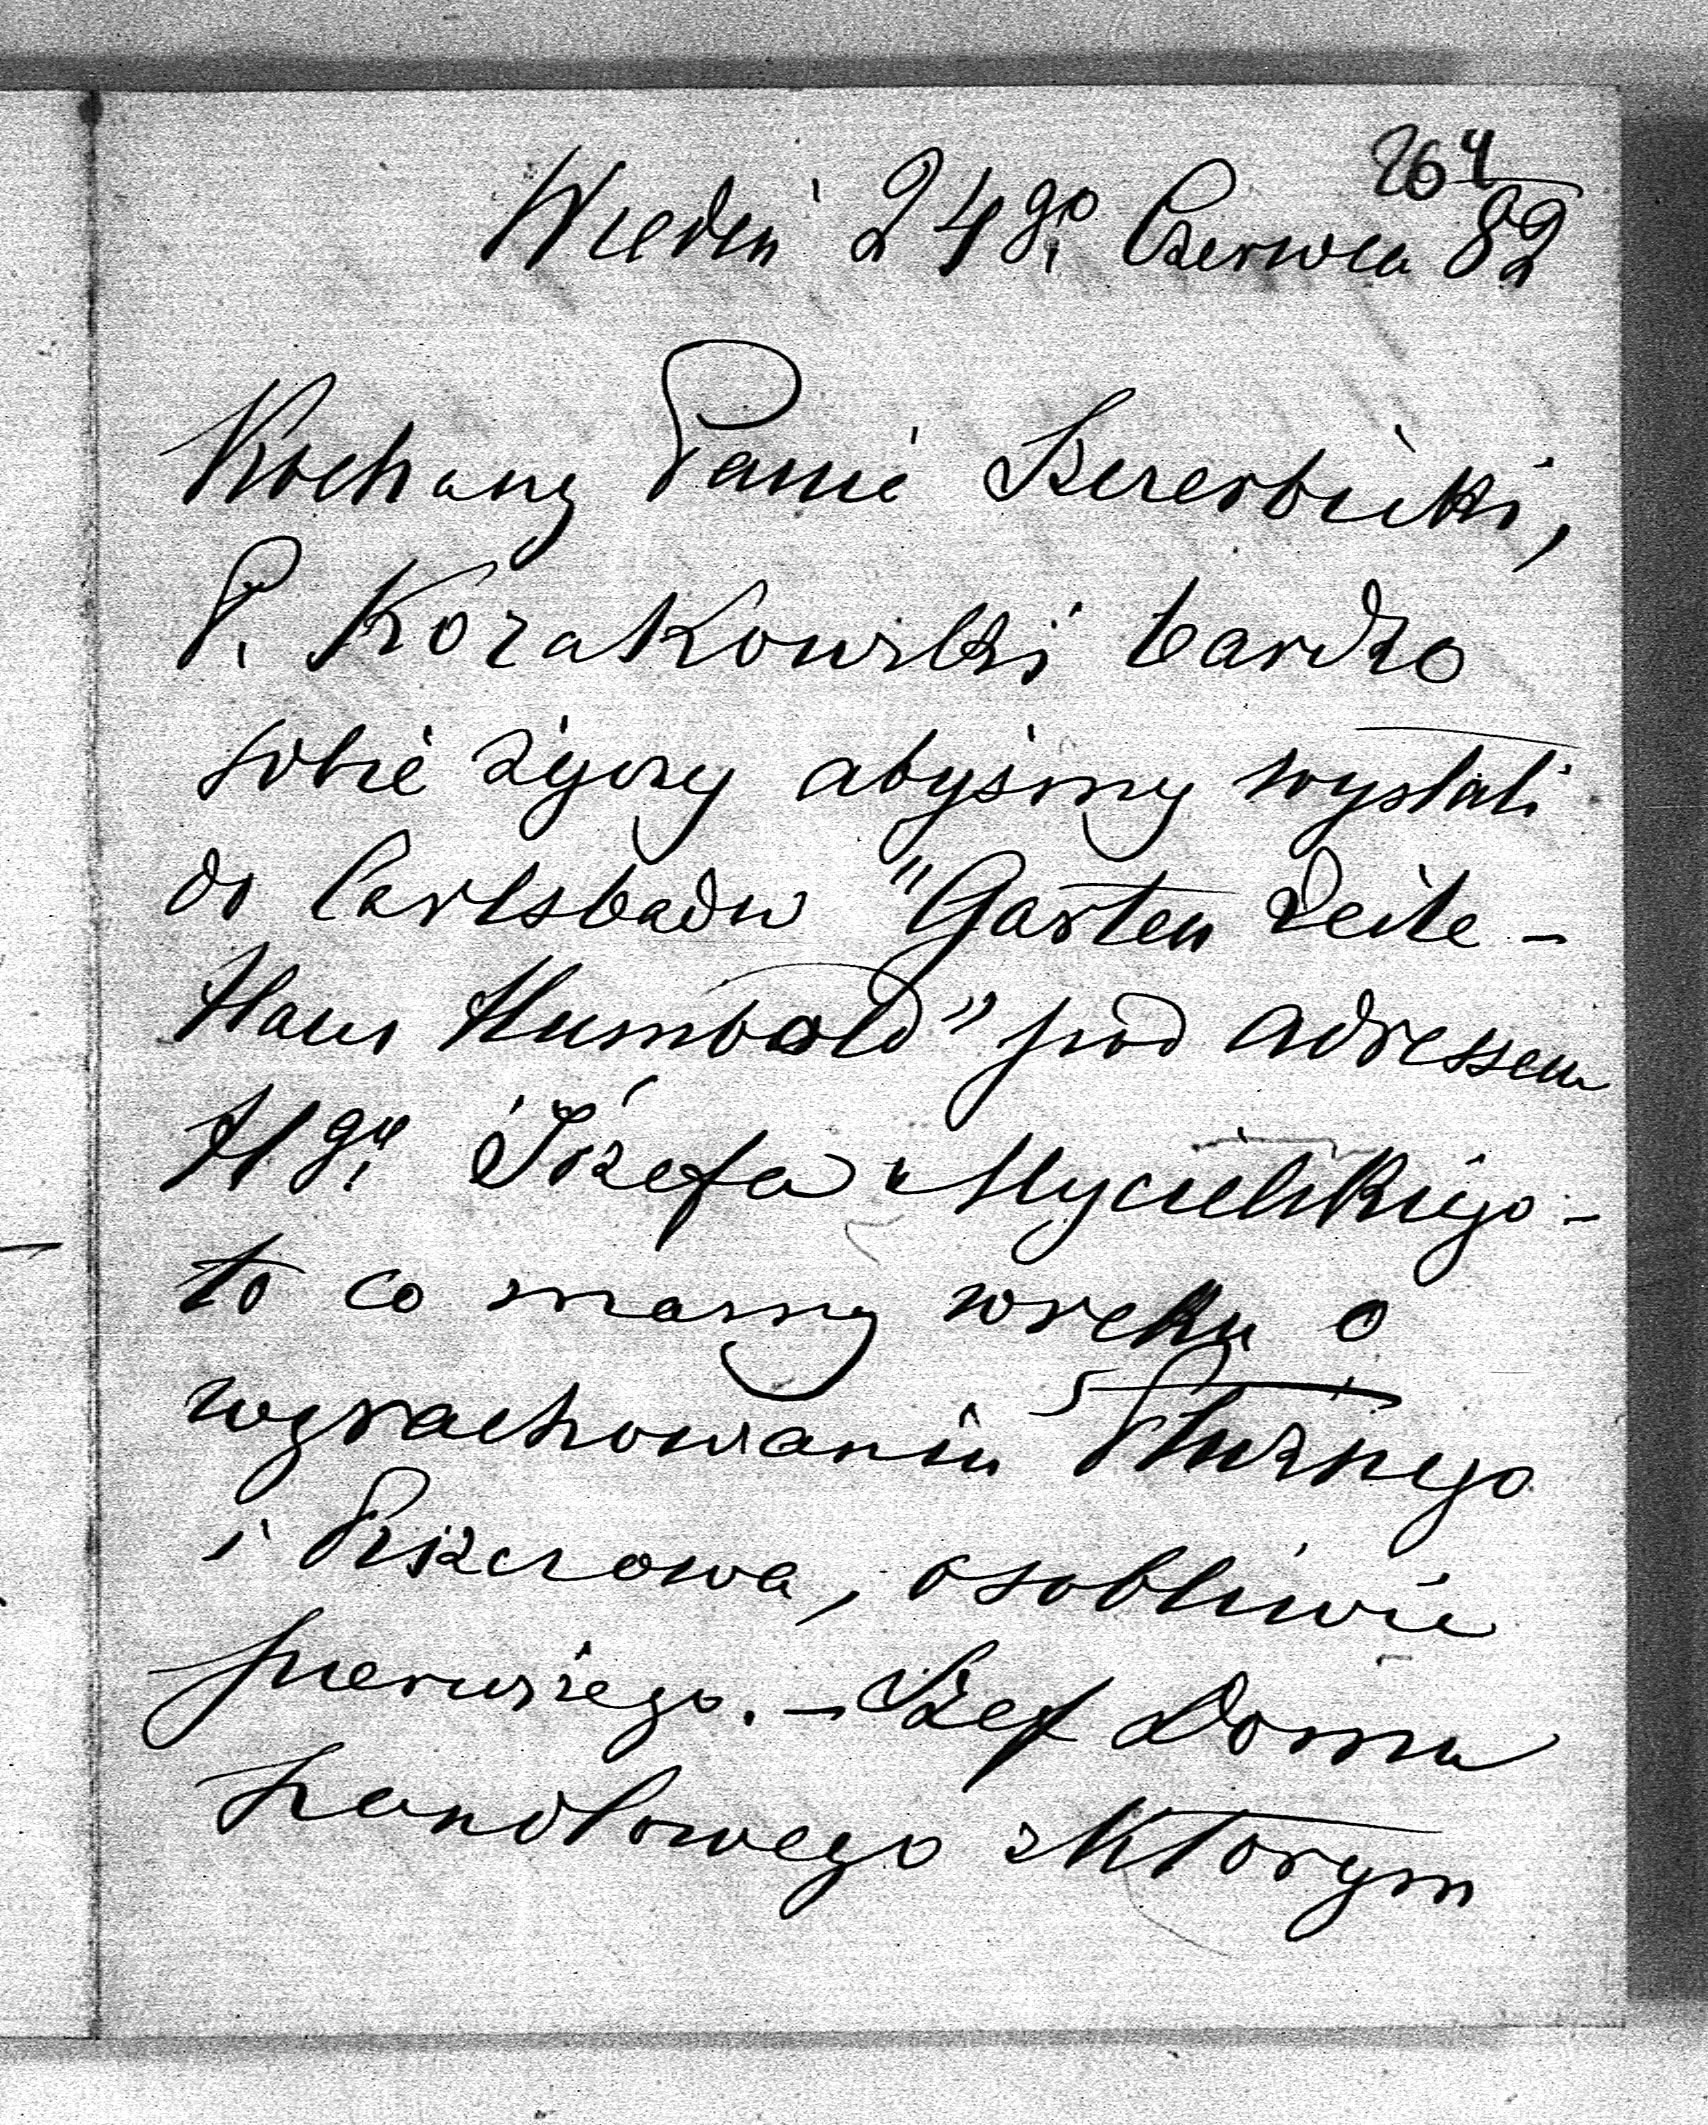 264
Wiedeń 24go Czerwca 82
Kochany Panie Szczerbicki,
P. Kozakowski bardzo
sobie życzy abyśmy wysłali
do Carlsbadu "Garten Zeile -
Haus Humbold" pod adressem
Hgo Józefa Mycielskiego -
to co mamy wręku o
wyrachowaniu Płużnego
i Pskrowa, osobliwie
pierwszego. - Szef Domu
handlowego zktórym